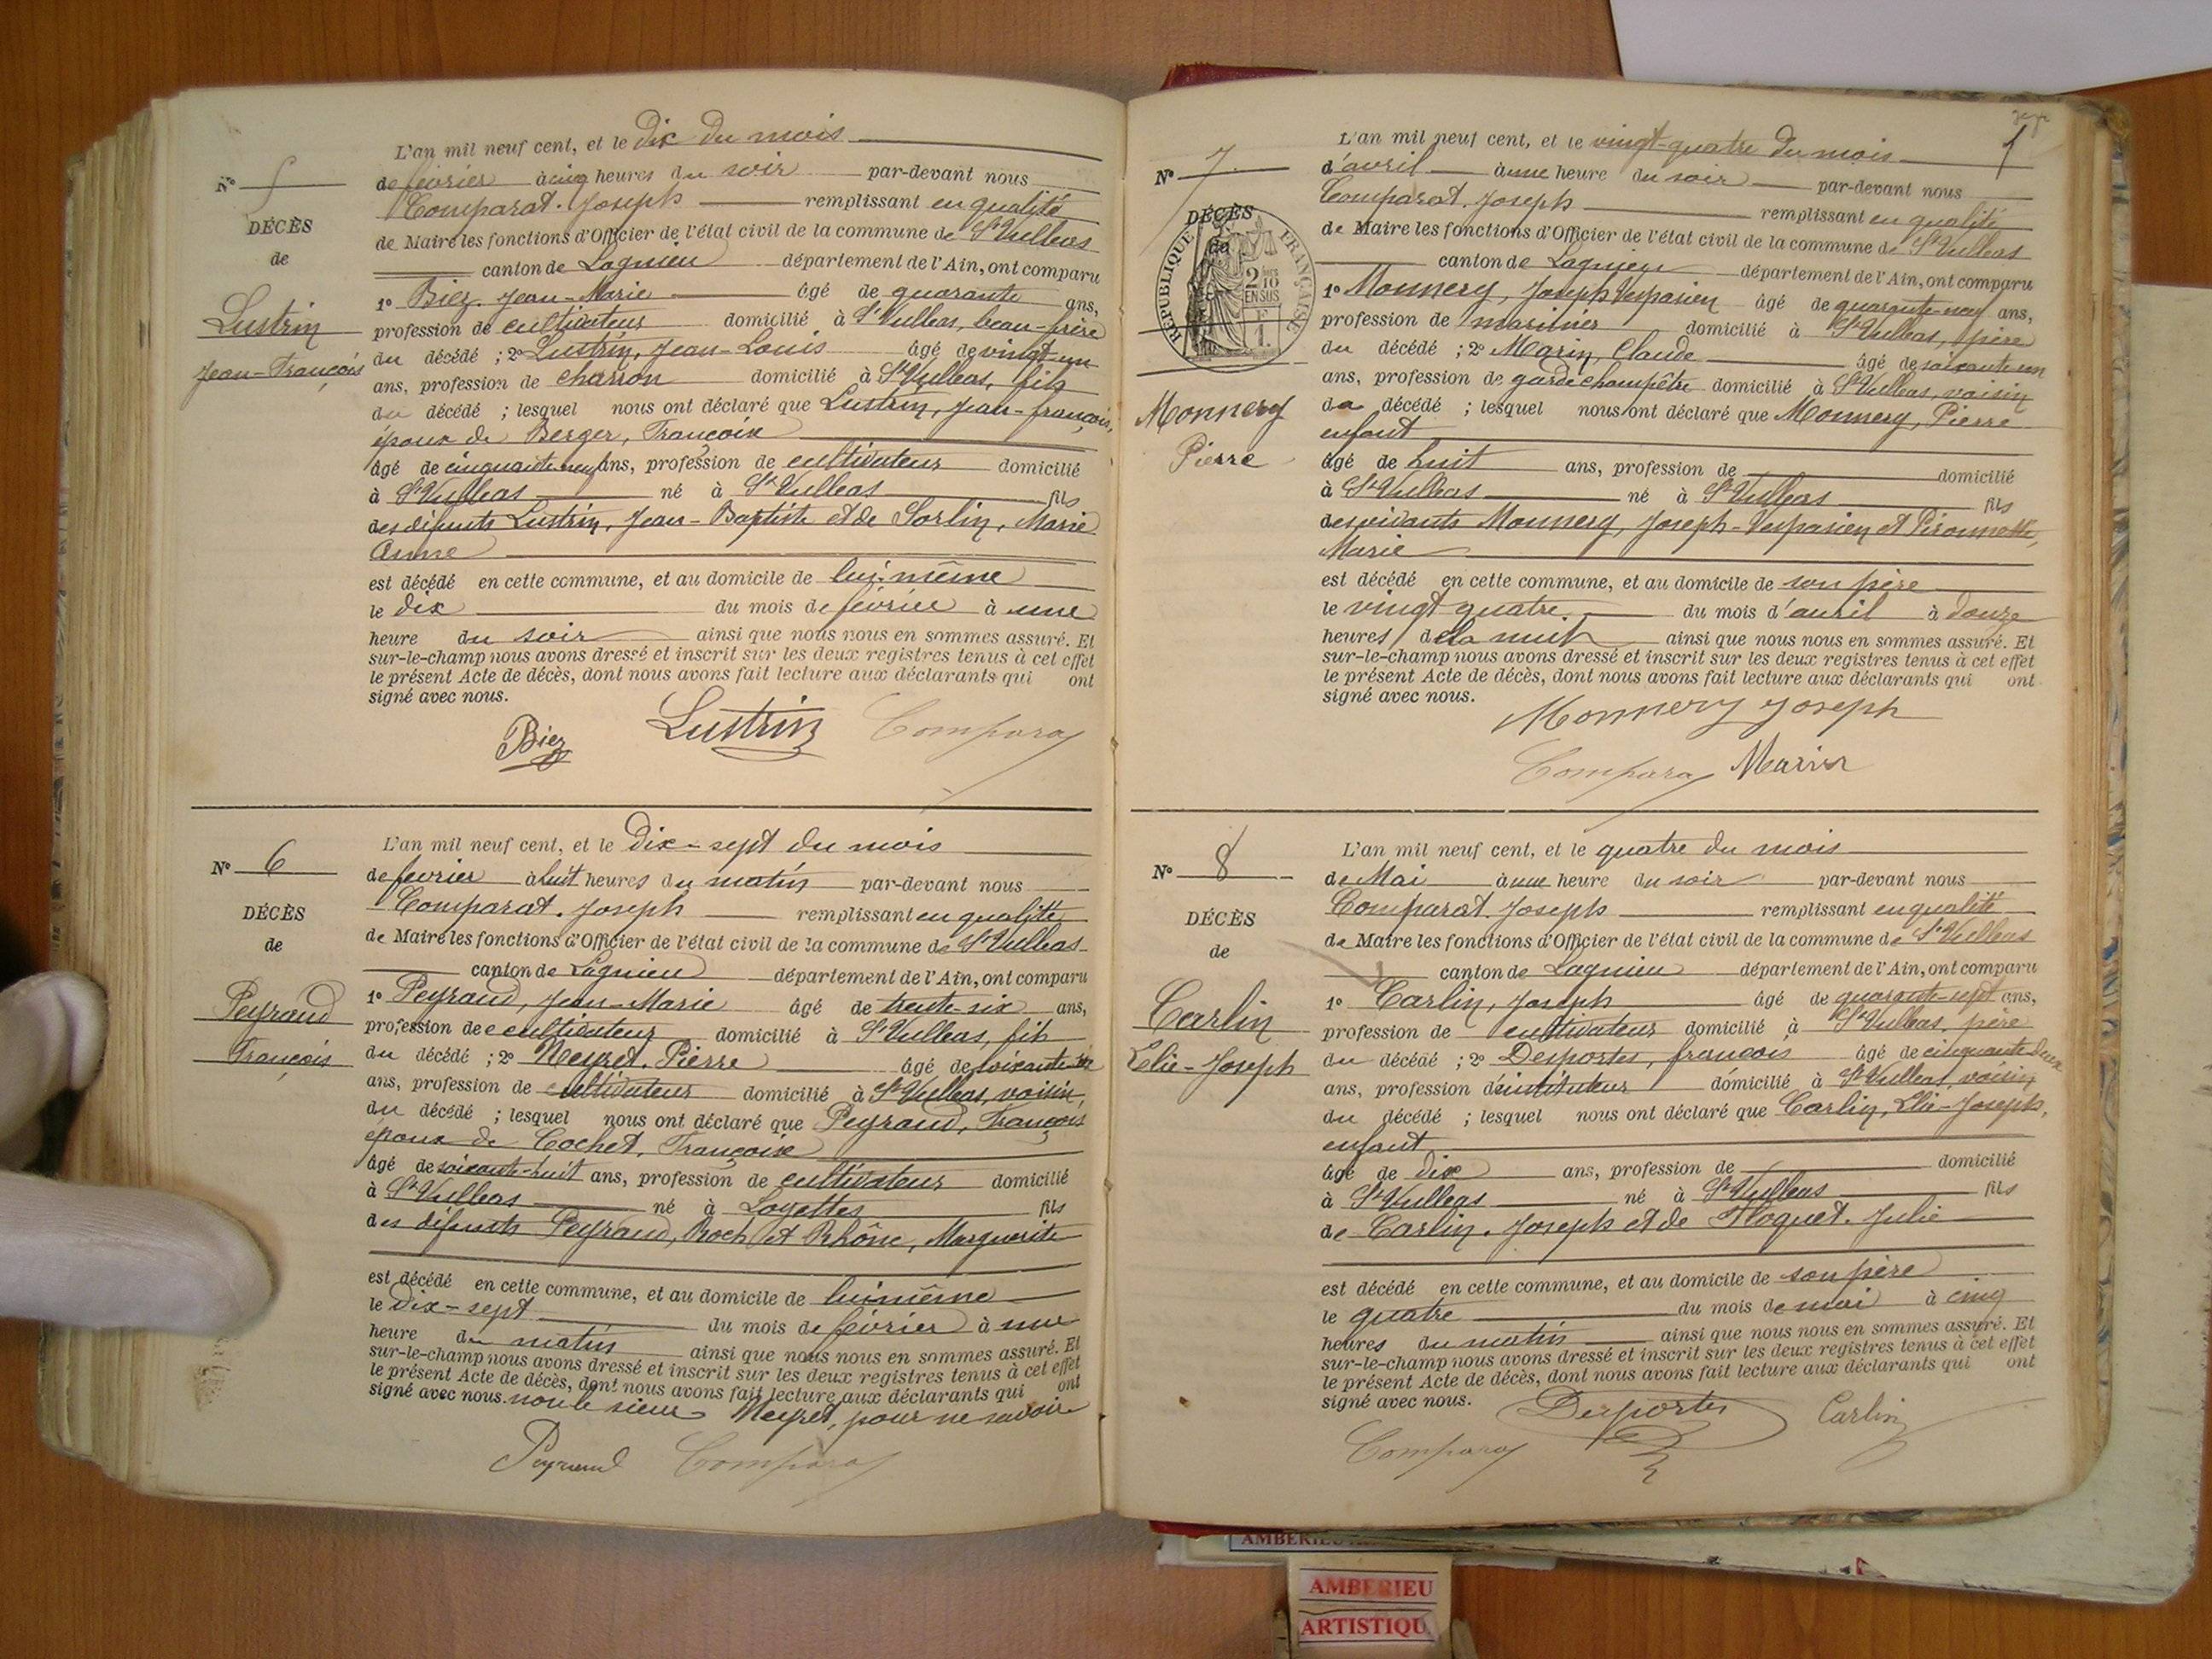 L'an mil neuf cent, et le Dix du mois
N° 5
de février à cinq heures du soir par-devant nous
Comparat. Joseph remplissant en qualité
DÉCÈS
de Maire les fonctions d'Officier de l'état civil de la commune de St Vulbas
de
canton de Lagnieu département de l'Ain, ont comparu
1° Biez. Jean-Marie âgé de quarante ans,
Lustrin
profession de cultivateur domicilié à St Vulbas, beau-frère
Jean-François
du décédé ; 2° Lustrin, Jean-Louis âgé de vingt-un
ans, profession de charron domicilié à St Vulbas, fils
du décédé ; lesquel nous ont déclaré que Lustrin, Jean-françois,
époux de Berger, Françoise
âgé de cinquante-neuf ans, profession de cultivateur domicilié
à St Vulbas né à St Vulbas fils
des défunts Lustrin, Jean-Baptiste et de Sorlin, Marie
Anne
est décédé en cette commune, et au domicile de lui-même
le dix du mois de février à une
heure du soir ainsi que nous nous en sommes assuré. Et
sur-le-champ nous avons dressé et inscrit sur les deux registres tenus à cet effet
le présent Acte de décès, dont nous avons fait lecture aux déclarants qui ont
signé avec nous.
Biez Lustrin Comparat
L'an mil neuf cent, et le Dix-sept du mois
N° 6
de février à huit heures du matin par-devant nous
Comparat. Joseph remplissant en qualité
DÉCÈS
de Maire les fonctions d'Officier de l'état civil de la commune de St Vulbas
de
canton de Lagnieu département de l'Ain, ont comparu
1° Peyraud, Jean-Marie âgé de trente-six ans,
Peyraud
profession de cultivateur domicilié à St Vulbas, fils
François
du décédé ; 2° Neyret. Pierre âgé de soixante-
ans, profession de cultivateur domicilié à St Vulbas, voisin,
du décédé ; lesquel nous ont déclaré que Peyraud, François
époux de Cochet, Françoise
âgé de soixante-huit ans, profession de cultivateur domicilié
à St Vulbas né à Loyettes fils
des défunts Peyraud, Roch et Rhône, Marguerite
est décédé en cette commune, et au domicile de lui-même
le Dix-sept du mois de février à une
heure du matin ainsi que nous nous en sommes assuré. Et
sur-le-champ nous avons dressé et inscrit sur les deux registres tenus à cet effet
le présent Acte de décès, dont nous avons fait lecture aux déclarants qui ont
signé avec nous. non le sieur Neyret, pour ne savoir
Peyraud Comparat
L'an mil neuf cent, et le vingt-quatre du mois
N° 7
d'avril à une heure du soir par-devant nous
Comparat. Joseph remplissant en qualité
DÉCÈS
de
RÉPUBLIQUE FRANÇAISE
2/10 EN SUS
1 F
de Maire les fonctions d'Officier de l'état civil de la commune de St Vulbas
canton de Lagnieu département de l'Ain, ont comparu
1° Monnery, Joseph Vespasien âgé de quarante-neuf ans,
profession de marinier domicilié à St Vulbas, père
du décédé ; 2° Marin, Claude âgé de soixante un
ans, profession de garde champêtre domicilié à St Vulbas, voisin
Monnery
du décédé ; lesquel nous ont déclaré que Monnery, Pierre
enfant
Pierre
âgé de huit ans, profession de domicilié
à St Vulbas né à St Vulbas fils
des vivants Monnery, Joseph-Vespasien et Pironnette,
Marie
est décédé en cette commune, et au domicile de son père
le vingt quatre du mois d'avril à douze
heures de la nuit ainsi que nous nous en sommes assuré. Et
sur-le-champ nous avons dressé et inscrit sur les deux registres tenus à cet effet
le présent Acte de décès, dont nous avons fait lecture aux déclarants qui ont
signé avec nous.
Monnery Joseph
Comparat Marin
L'an mil neuf cent, et le quatre du mois
N° 8
de Mai à une heure du soir par-devant nous
Comparat. Joseph remplissant en qualité
DÉCÈS
de Maire les fonctions d'Officier de l'état civil de la commune de St Vulbas
de
canton de Lagnieu département de l'Ain, ont comparu
1° Carlin, Joseph âgé de quarante-sept ans,
Carlin
profession de cultivateur domicilié à St Vulbas, père
Elie-Joseph
du décédé ; 2° Desportes, françois âgé de cinquante deux
ans, profession d'instituteur domicilié à St Vulbas, voisin
du décédé ; lesquel nous ont déclaré que Carlin, Elie-Joseph,
enfant
âgé de dix ans, profession de domicilié
à St Vulbas né à St Vulbas fils
de Carlin. Joseph et de Floquet. Julie
est décédé en cette commune, et au domicile de son père
le quatre du mois de mai à cinq
heures du matin ainsi que nous nous en sommes assuré. Et
sur-le-champ nous avons dressé et inscrit sur les deux registres tenus à cet effet
le présent Acte de décès, dont nous avons fait lecture aux déclarants qui ont
signé avec nous.
Comparat Desportes Carlin
AMBERIEU
AMBERIEU
ARTISTIQU